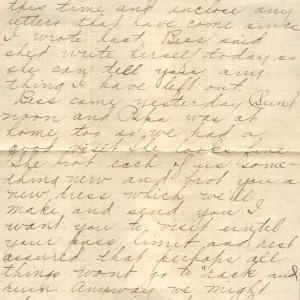 this time and enclose any
letters that have come since
I wrote last. Bess said
she'd write herself today, so
she can tell you any-
thing I have left out.
Bess came yesterday Sund
noon and Papa was at
home too so we had a
good visit. She looks fine
She brot each of us some-
thing new and brot you a
new dress which we'll
make and send you. I
want you to visit until
your pass limit and rest
assured that perhaps all
things wont go to "rack and
ruin. Anyway we might